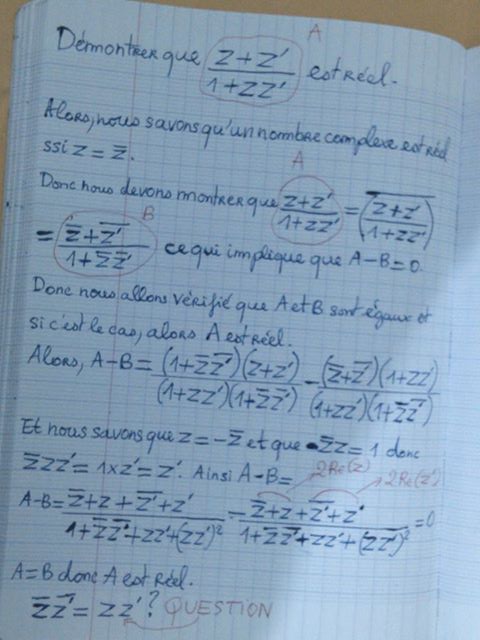 A
Démontrer que (z+z')/(1+zz') est réel.
Alors, nous savons qu'un nombre complexe est réel
ssi z = z̅.
A
Donc nous devons montrer que (z+z')/(1+zz') = \overline{((z+z')/(1+zz'))}
B
= (z̅+z̅')/(1+z̅z̅') ce qui implique que A-B=0.
Donc nous allons vérifié que A et B sont égaux et
si c'est le cas, alors A est réel.
Alors, A-B = ((1+z̅z̅')(z+z'))/((1+zz')(1+z̅z̅')) - ((z̅+z̅')(1+zz'))/((1+zz')(1+z̅z̅'))
Et nous savons que z = -z̅ et que z̅z = 1 donc
z̅zz' = 1×z' = z'. Ainsi A-B= 2Re(z) 2Re(z')
A-B = (z̅+z+z̅'+z')/(1+z̅z̅'+zz'+(zz')²) - (z̅+z+z̅'+z')/(1+z̅z̅'+zz'+(zz')²) = 0
A=B donc A est réel.
z̅z̅' = zz' ? QUESTION